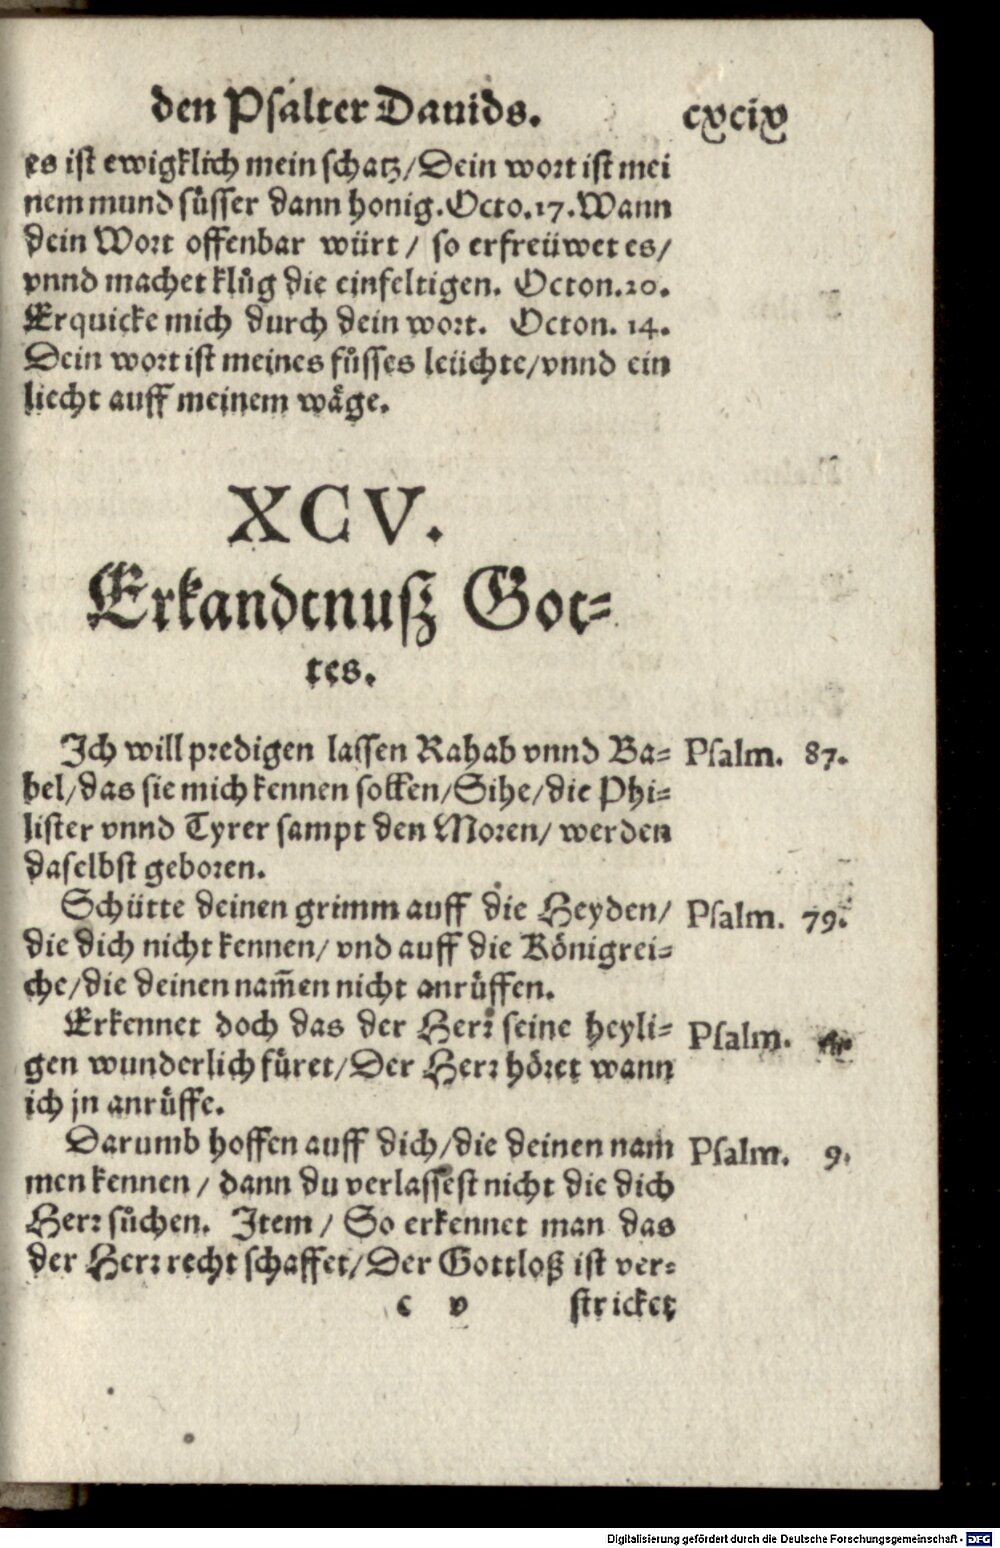 den Psalter Dauids. cxcix
es ist ewigklich mein schatz/Dein wort ist mei
nem mund süsser dann honig. Octo.17. Wann
dein Wort offenbar würt/ so erfreüwet es/
vnnd machet klůg die einfeltigen. Octon.20.
Erquicke mich durch dein wort. Octon. 14.
Dein wort ist meines fůsses leüchte/vnnd ein
liecht auff meinem wäge.
XCV.
Erkandtnusz Got=
tes.
Ich will predigen lassen Rahab vnnd Ba= Psalm. 87.
bel/das sie mich kennen sollen/Sihe/die Phi=
lister vnnd Tyrer sampt den Moren/ werden
daselbst geboren.
Schütte deinen grimm auff die Heyden/ Psalm. 79.
die dich nicht kennen/ vnd auff die Königrei=
che/die deinen nam̃en nicht anrůffen.
Erkennet doch das der Herr seine heyli= Psalm.
gen wunderlich füret/Der Herr höret wann
ich jn anrůffe.
Darumb hoffen auff dich/die deinen nam Psalm. 9.
men kennen/ dann du verlassest nicht die dich
Herr sůchen. Item/ So erkennet man das
der Herr recht schaffet/Der Gottloß ist ver=
c v stricket
Digitalisierung gefördert durch die Deutsche Forschungsgemeinschaft - DFG